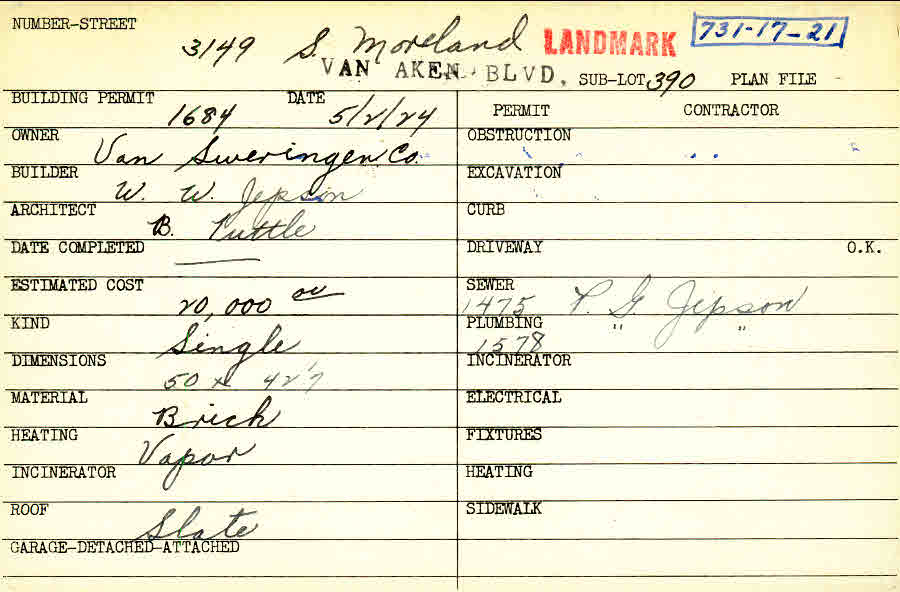 NUMBER-STREET 3149 S. Moreland LANDMARK 731-17-21
VAN AKEN BLVD. SUB-LOT 390 PLAN FILE -
BUILDING PERMIT 1684 DATE 5/2/24 PERMIT CONTRACTOR
OWNER Van Sweringen Co. OBSTRUCTION
BUILDER W. W. Jepson EXCAVATION
ARCHITECT B. Tuttle CURB
DATE COMPLETED — DRIVEWAY O.K.
ESTIMATED COST 20,000 00 SEWER 1475 P. G. Jepson
KIND Single PLUMBING 1578 " "
DIMENSIONS 50 x 42'7 INCINERATOR
MATERIAL Brick ELECTRICAL
HEATING Vapor FIXTURES
INCINERATOR HEATING
ROOF Slate SIDEWALK
GARAGE-DETACHED-ATTACHED